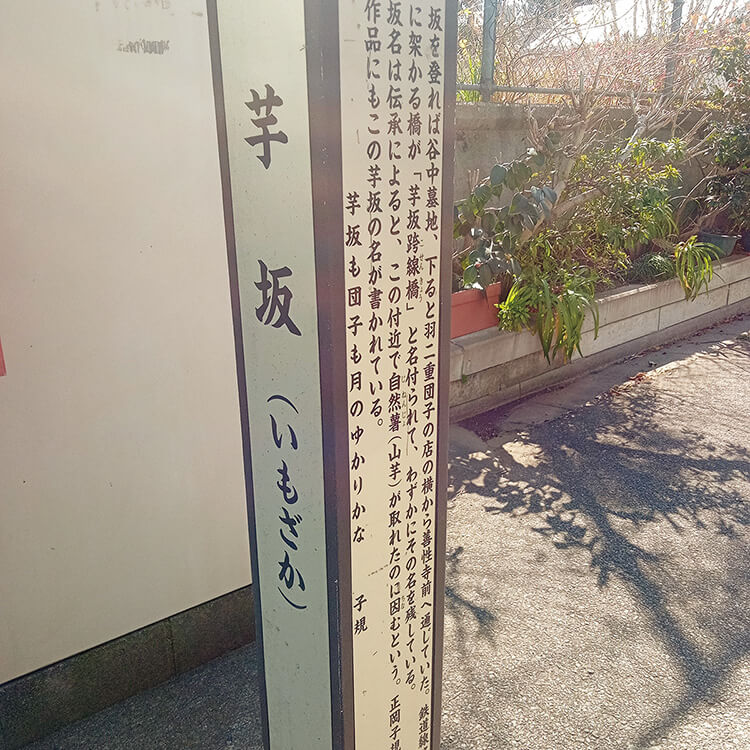 芋坂（いもざか）
坂を登れば谷中墓地、下ると羽二重団子の店の横から善性寺前へ通じていた。鉄道線
に架かる橋が「芋坂跨線橋」と名付られて、わずかにその名を残している。
坂名は伝承によると、この付近で自然薯（山芋）が取れたのに因むという。正岡子規
作品にもこの芋坂の名が書かれている。
芋坂も団子も月のゆかりかな　子規